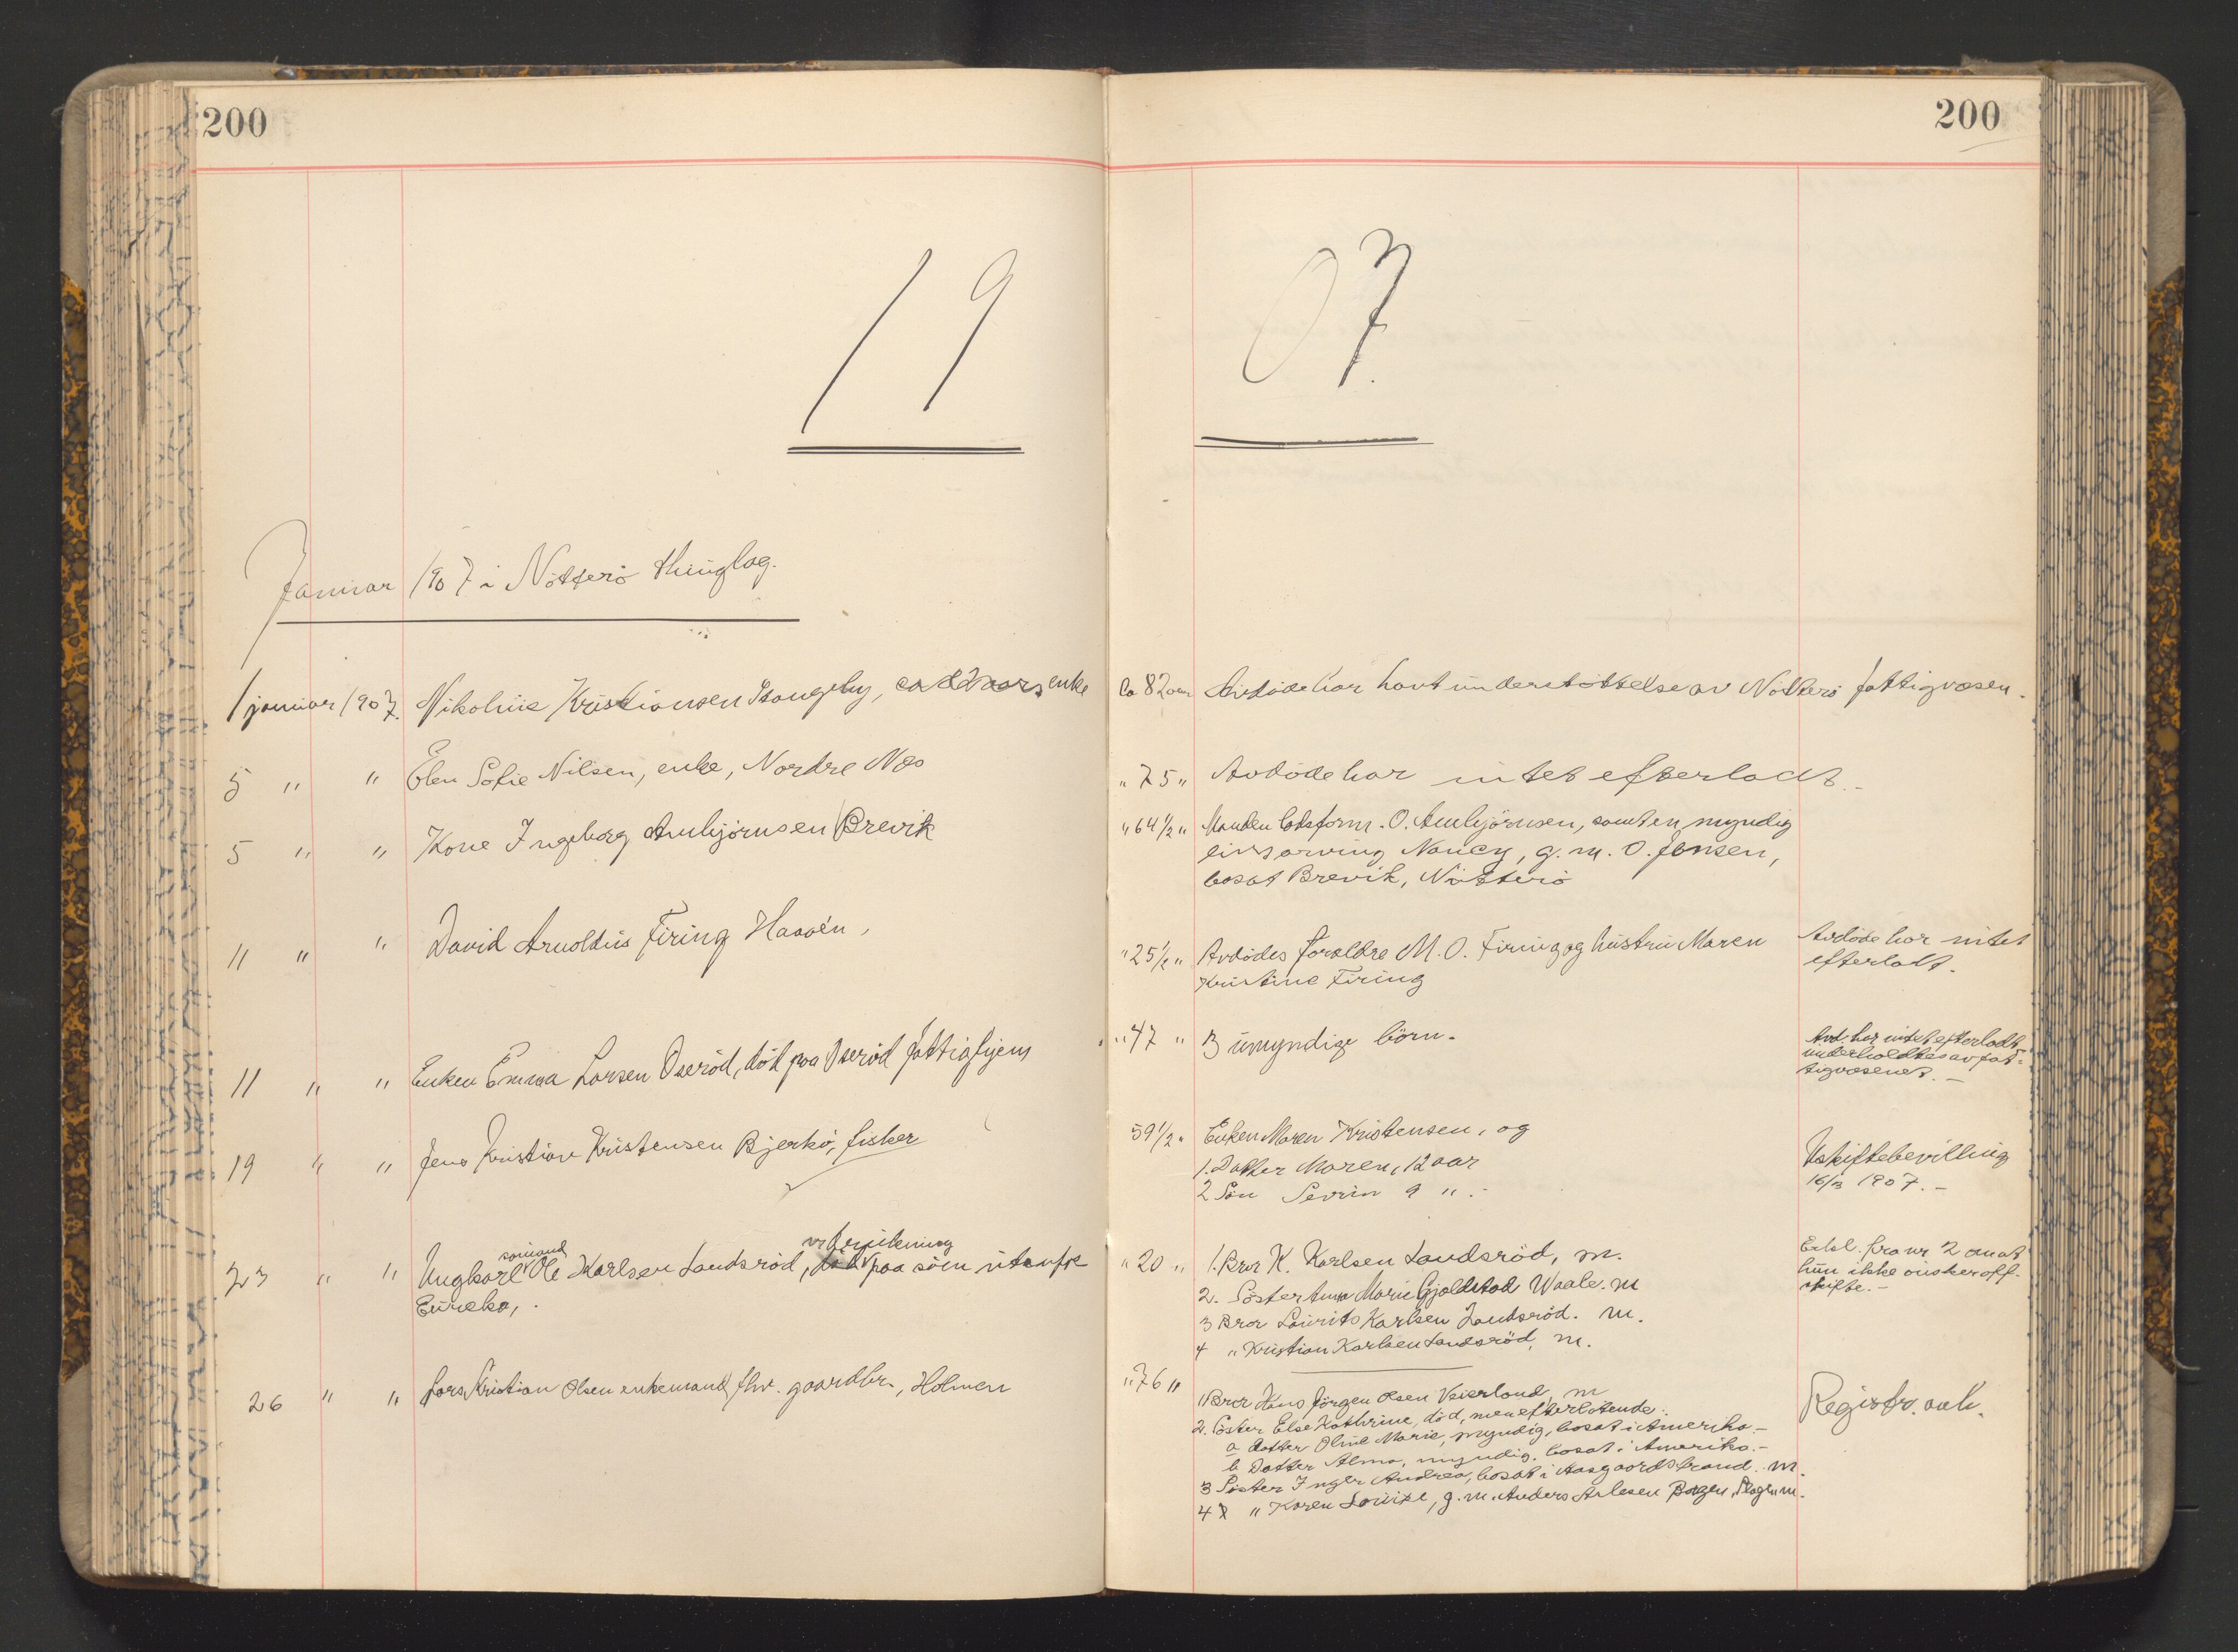 200
200
19
07.
Januar 1907 i Nötterö thinglag.
1 januar 1907. Nikoline Kristiansen Stangeby, enke ca 82 aar Avdöde har havt understöttelse av Nötterö fattigvæsen.
5 " " Elen Sofie Nilsen, enke, Nordre Næs " 75 " Avdöde har intet efterladt.
5 " " Kone Ingeborg Ambjörnsen Brevik " 64 1/2 " Manden lodsform. O. Ambjörnsen, samt en myndig
livsarving Nancy, g. m. O. Jensen,
bosat Brevik, Nötterö
11 " " David Arnoldus Firing Haaöen, " 25 1/2 " Avdödes forældre M. O. Firing og hustru Maren Avdöde har intet
Kristine Firing efterladt.
11 " " Enken Emma Larsen Oseröd, död paa Oseröd fattighjem " 47 " 3 umyndige börn. Avd. har intet efterladt
underholdtes av fat-
tigvæsenet.
19 " " Jens Kristian Kristensen Bjerkö, fisker 59 1/2 " Enken Maren Kristensen, og
1. Datter Maren, 12 aar Uskiftebevilling
2 Sön Severin 9 " 16/3 1907.
sömand ved drukning
23 " " Ungkarl Ole Karlsen Landsröd, död paa söen utenfor " 20 " 1. Bror K. Karlsen Landsröd, m. Erkl. fra nr 2 om at
Eureka, 2. Söster Anna Marie Gjoldstad Waale. m hun ikke önsker off.
3 Bror Laurits Karlsen Landsröd. m. skifte.
4 " Kristian Karlsen Landsröd, m.
26 " " Lars Kristian Olsen enkemand fhv. gaardbr., Holmen " 76 " 1 Bror Hans Jörgen Olsen Veierland, m Registr. avh.
2. Söster Else Kathrine, död, men efterlatende:
a Datter Oline Marie, myndig, bosat i Amerika.
b Datter Alma, myndig, bosat i Amerika.
3 Söster Inger Andrea, bosat i Aasgaardstrand. m.
4 " Karen Louise, g. m. Anders Arlesen Borgen, Slagen m.